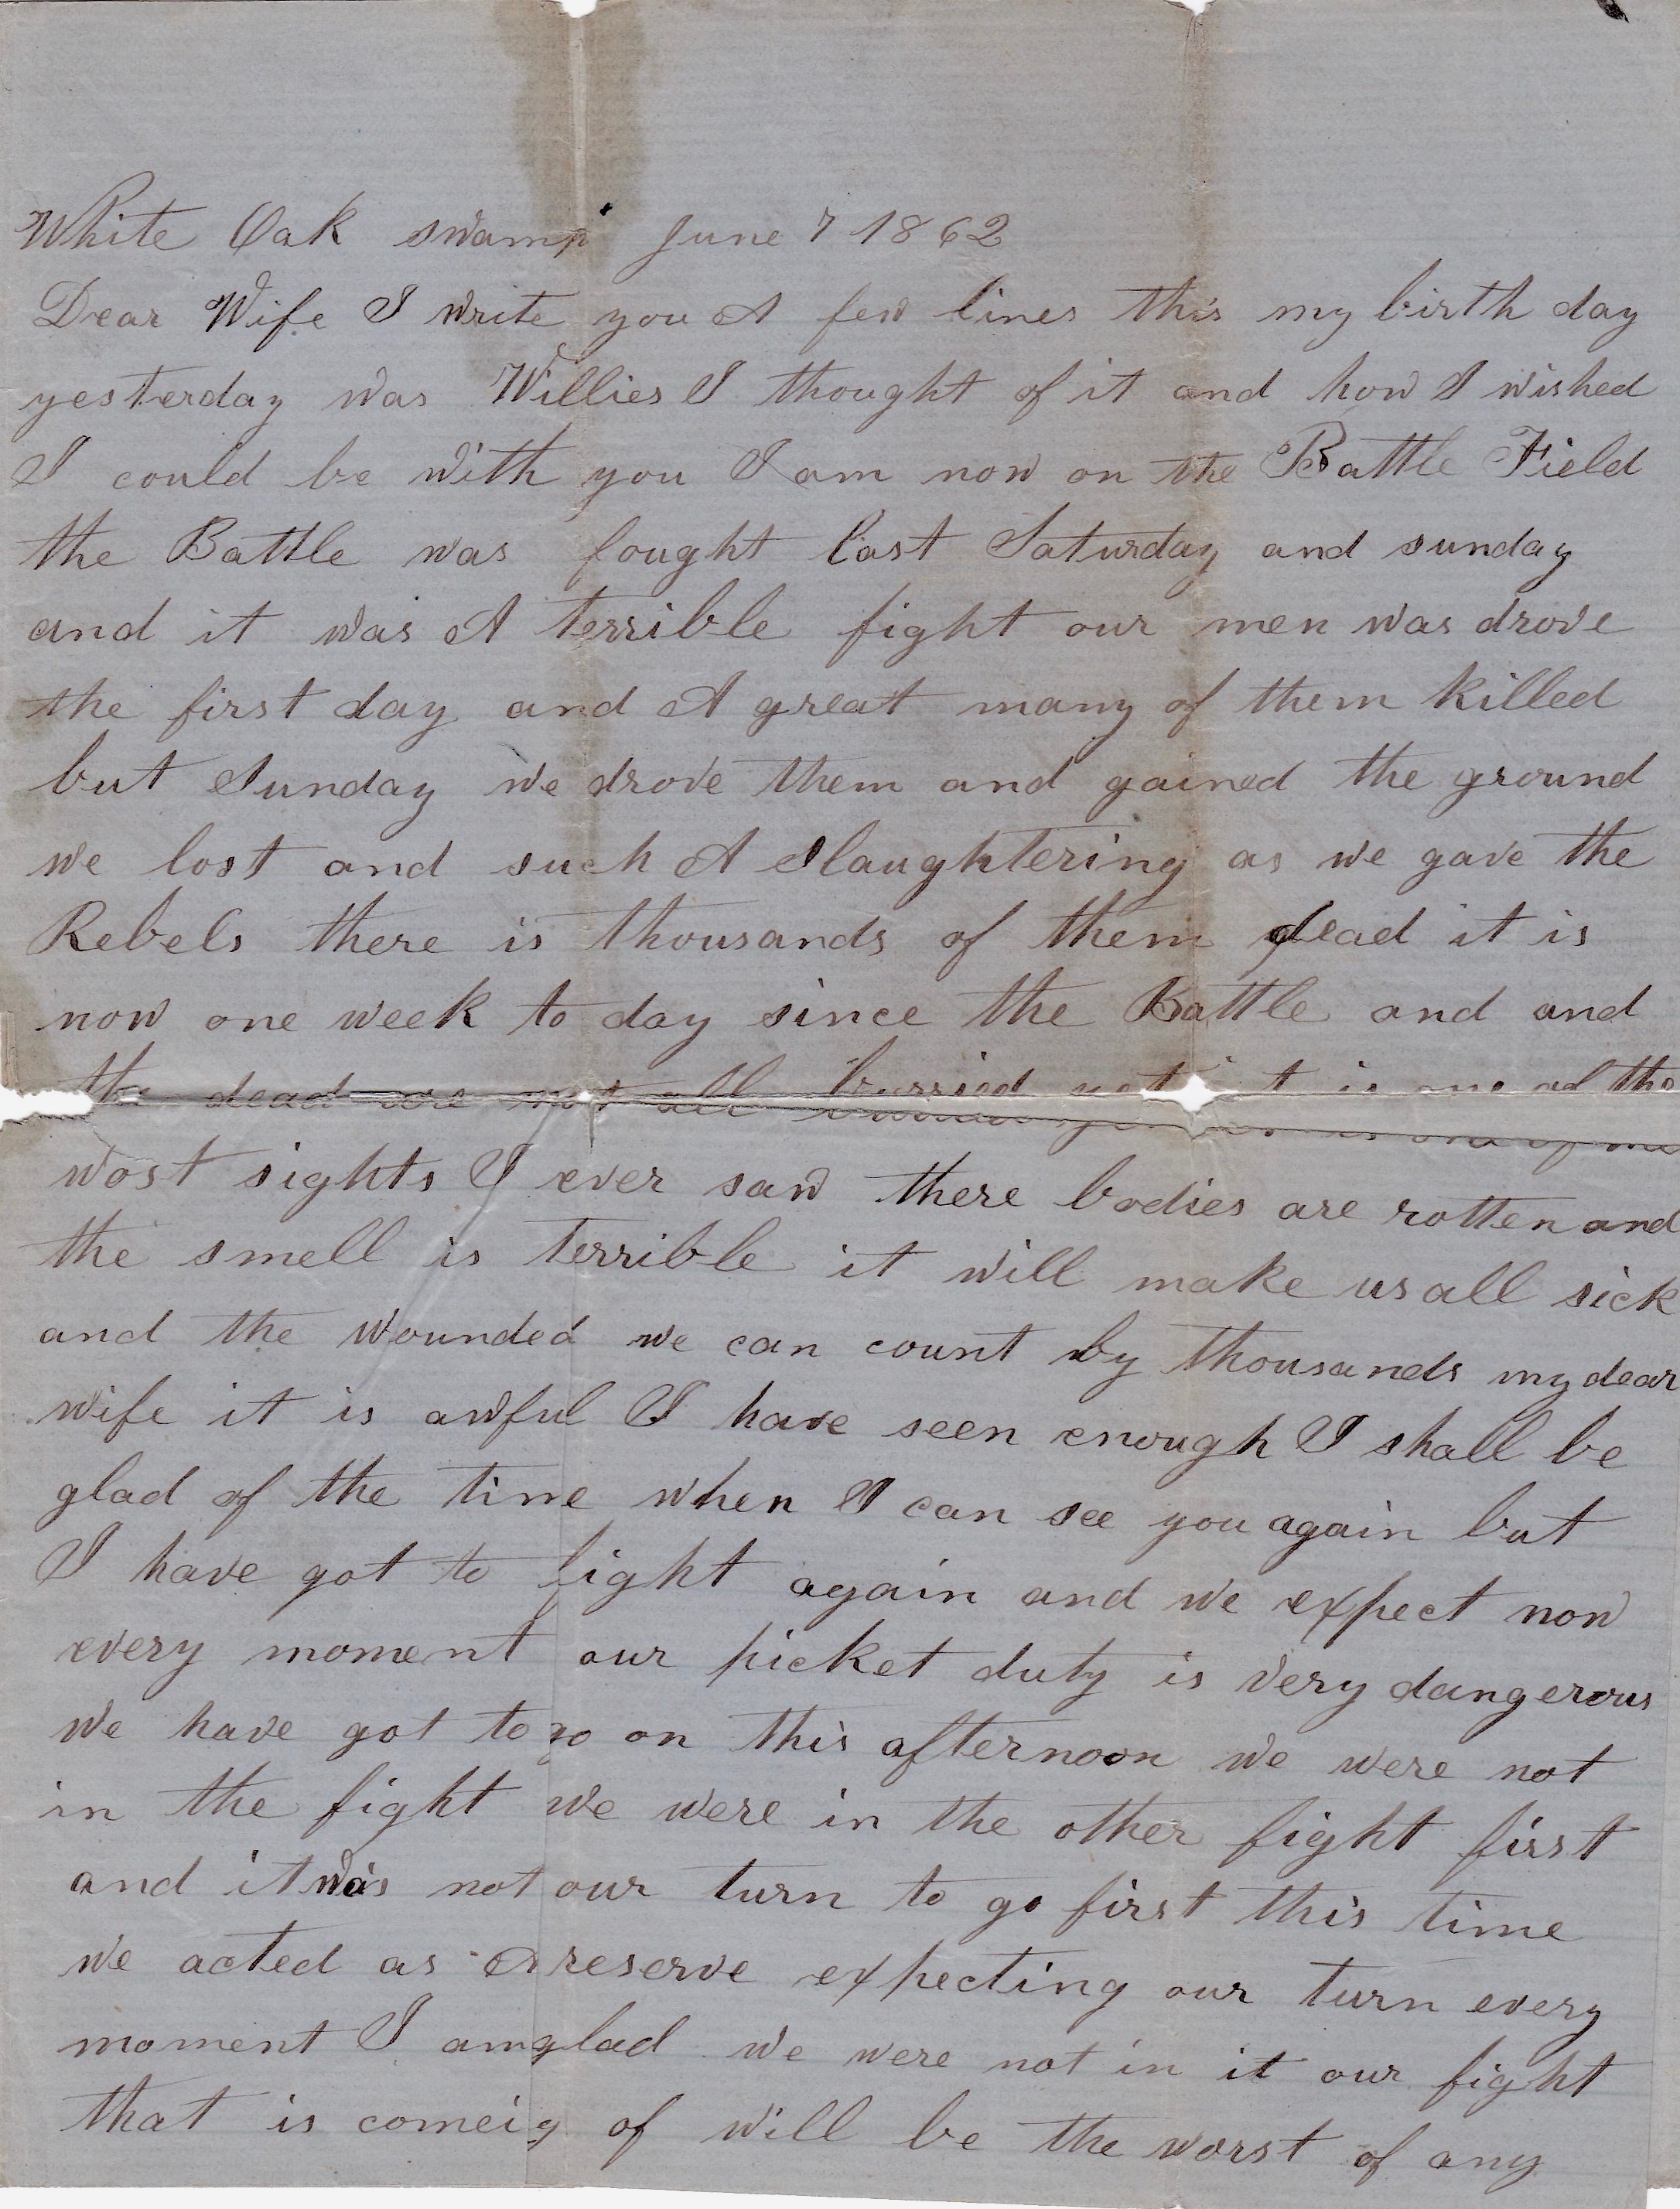 White Oak swamp June 7 1862
Dear Wife I write you A few lines this my birth day
yesterday was Willies I thought of it and how I wished
I could be with you I am now on the Battle Field
the Battle was fought last Saturday and sunday
and it was A terrible fight our men was drove
the first day and A great many of them killed
but Sunday we drove them and gained the ground
we lost and such A Slaughtering as we gave the
Rebels there is thousands of them dead it is
now one week to day since the Battle and and
the dead are not all burried yet it is one of the
wost sights I ever saw there bodies are rotten and
the smell is terrible it will make us all sick
and the wounded we can count by thousands my dear
wife it is awful I have seen enough I shall be
glad of the time when I can see you again but
I have got to fight again and we expect now
every moment our picket duty is very dangerous
we have got to go on this afternoon we were not
in the fight we were in the other fight first
and it was not our turn to go first this time
we acted as a reserve expecting our turn every
moment I am glad we were not in it our fight
that is comeig of will be the worst of any